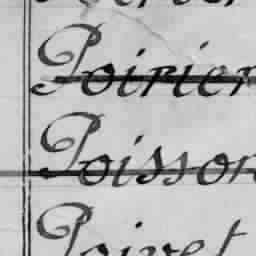 Poirier
Poisson
Poivet